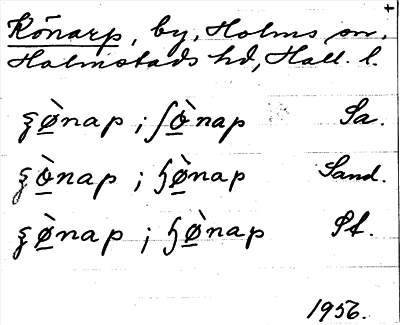 Könarp, by, Holms sn,
Halmstads hd, Hall. l.
ȿø̲̀nap ; ʃø̲̀nap Sa.
ȿø̲̀nap ; ɧø̲̀nap Sand.
ȿø̲̀nap ; ɧø̲̀nap St.
1956.